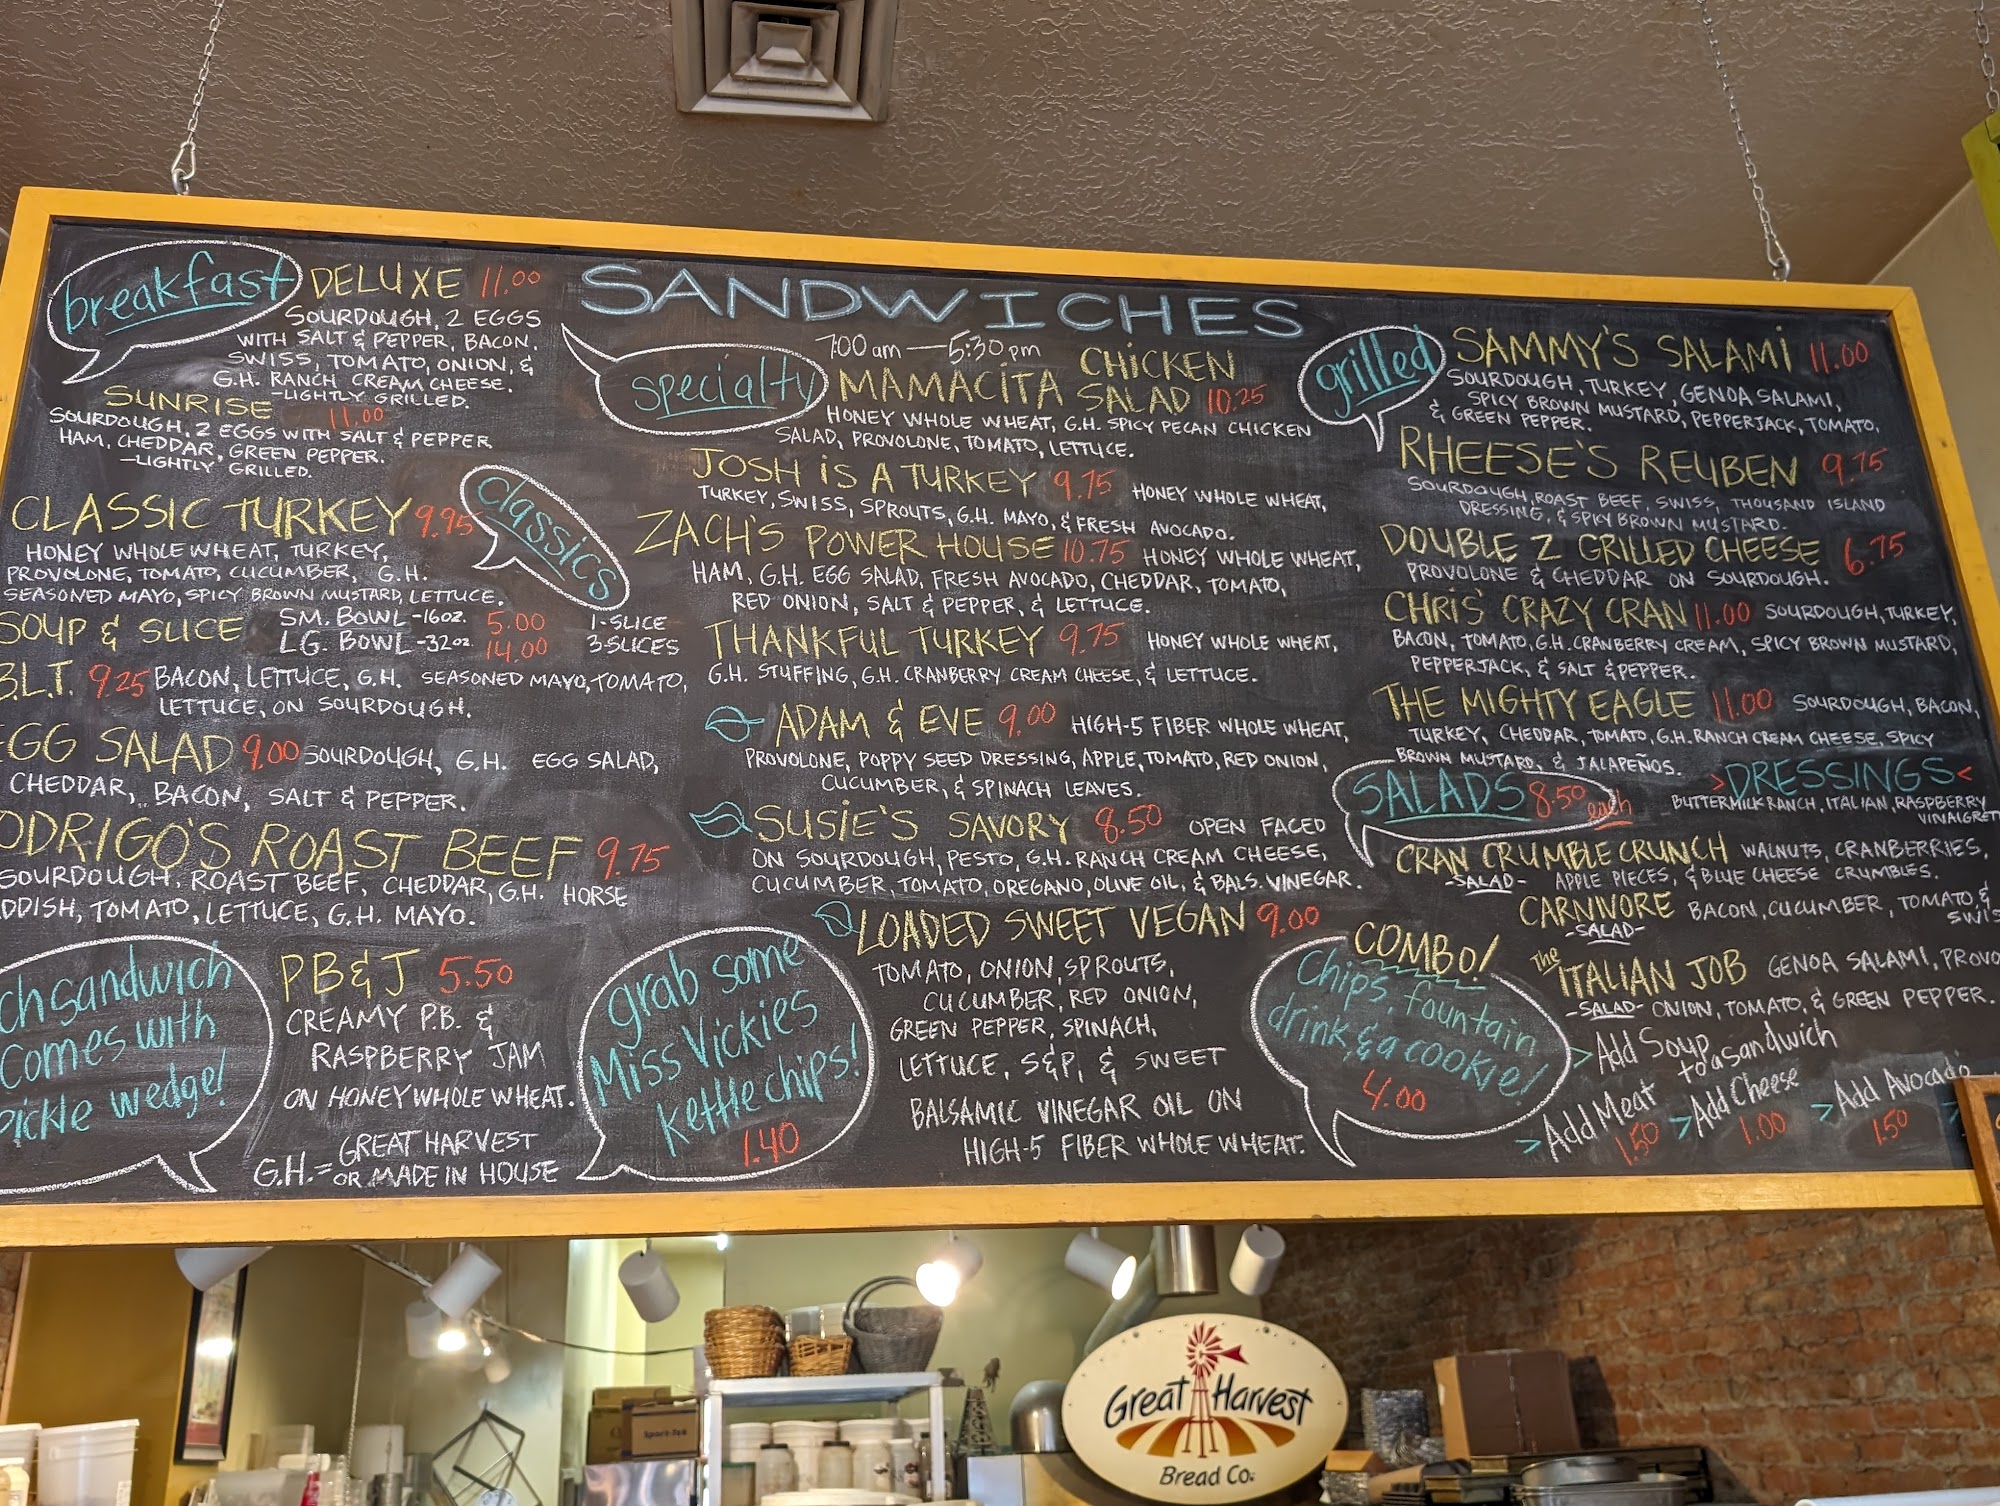 SANDWICHES
7:00 am — 5:30 pm
breakfast
DELUXE 11.00
SOURDOUGH, 2 EGGS
WITH SALT & PEPPER, BACON,
SWISS, TOMATO, ONION, &
G.H. RANCH CREAM CHEESE.
-LIGHTLY GRILLED.
SUNRISE
11.00
SOURDOUGH, 2 EGGS WITH SALT & PEPPER
HAM, CHEDDAR, GREEN PEPPER.
-LIGHTLY GRILLED.
classics
CLASSIC TURKEY 9.95
HONEY WHOLE WHEAT, TURKEY,
PROVOLONE, TOMATO, CUCUMBER, G.H.
SEASONED MAYO, SPICY BROWN MUSTARD, LETTUCE.
SOUP & SLICE SM. BOWL -16oz. 5.00 1-SLICE
LG. BOWL -32oz. 14.00 3-SLICES
B.L.T. 9.25 BACON, LETTUCE, G.H. SEASONED MAYO, TOMATO,
LETTUCE, ON SOURDOUGH.
EGG SALAD 9.00 SOURDOUGH, G.H. EGG SALAD,
CHEDDAR, BACON, SALT & PEPPER.
ODRIGO'S ROAST BEEF 9.75
SOURDOUGH, ROAST BEEF, CHEDDAR, G.H. HORSE
DDISH, TOMATO, LETTUCE, G.H. MAYO.
ch sandwich
comes with
pickle wedge!
PB&J 5.50
CREAMY P.B. &
RASPBERRY JAM
ON HONEY WHOLE WHEAT.
G.H. = GREAT HARVEST
OR MADE IN HOUSE
specialty
MAMACITA CHICKEN
SALAD 10.25
HONEY WHOLE WHEAT, G.H. SPICY PECAN CHICKEN
SALAD, PROVOLONE, TOMATO, LETTUCE.
JOSH IS A TURKEY 9.75 HONEY WHOLE WHEAT,
TURKEY, SWISS, SPROUTS, G.H. MAYO, & FRESH AVOCADO.
ZACH'S POWER HOUSE 10.75 HONEY WHOLE WHEAT,
HAM, G.H. EGG SALAD, FRESH AVOCADO, CHEDDAR, TOMATO,
RED ONION, SALT & PEPPER, & LETTUCE.
THANKFUL TURKEY 9.75 HONEY WHOLE WHEAT,
G.H. STUFFING, G.H. CRANBERRY CREAM CHEESE, & LETTUCE.
ADAM & EVE 9.00 HIGH-5 FIBER WHOLE WHEAT,
PROVOLONE, POPPY SEED DRESSING, APPLE, TOMATO, RED ONION,
CUCUMBER, & SPINACH LEAVES.
SUSIE'S SAVORY 8.50 OPEN FACED
ON SOURDOUGH, PESTO, G.H. RANCH CREAM CHEESE,
CUCUMBER, TOMATO, OREGANO, OLIVE OIL, & BALS. VINEGAR.
LOADED SWEET VEGAN 9.00
TOMATO, ONION, SPROUTS,
CUCUMBER, RED ONION,
GREEN PEPPER, SPINACH,
LETTUCE, S&P, & SWEET
BALSAMIC VINEGAR OIL ON
HIGH-5 FIBER WHOLE WHEAT.
grab some
Miss Vickies
kettle chips!
1.40
grilled
SAMMY'S SALAMI 11.00
SOURDOUGH, TURKEY, GENOA SALAMI,
SPICY BROWN MUSTARD, PEPPERJACK, TOMATO,
& GREEN PEPPER.
RHEESE'S REUBEN 9.75
SOURDOUGH, ROAST BEEF, SWISS, THOUSAND ISLAND
DRESSING, & SPICY BROWN MUSTARD.
DOUBLE Z GRILLED CHEESE 6.75
PROVOLONE & CHEDDAR ON SOURDOUGH.
CHRIS' CRAZY CRAN 11.00 SOURDOUGH, TURKEY,
BACON, TOMATO, G.H. CRANBERRY CREAM, SPICY BROWN MUSTARD,
PEPPERJACK, & SALT & PEPPER.
THE MIGHTY EAGLE 11.00 SOURDOUGH, BACON,
TURKEY, CHEDDAR, TOMATO, G.H. RANCH CREAM CHEESE, SPICY
BROWN MUSTARD, & JALAPEÑOS.
SALADS 8.50 each
>DRESSINGS<
BUTTERMILK RANCH, ITALIAN, RASPBERRY
VINAIGRET
CRAN CRUMBLE CRUNCH WALNUTS, CRANBERRIES,
-SALAD- APPLE PIECES, & BLUE CHEESE CRUMBLES.
CARNIVORE BACON, CUCUMBER, TOMATO, &
-SALAD- SWIS
The ITALIAN JOB GENOA SALAMI, PROVO
-SALAD- ONION, TOMATO, & GREEN PEPPER.
COMBO!
Chips, fountain
drink, & a cookie!
4.00
> Add Soup
to a sandwich
> Add Meat 1.50 > Add Cheese 1.00 > Add Avocado 1.50 >
Great Harvest
Bread Co.